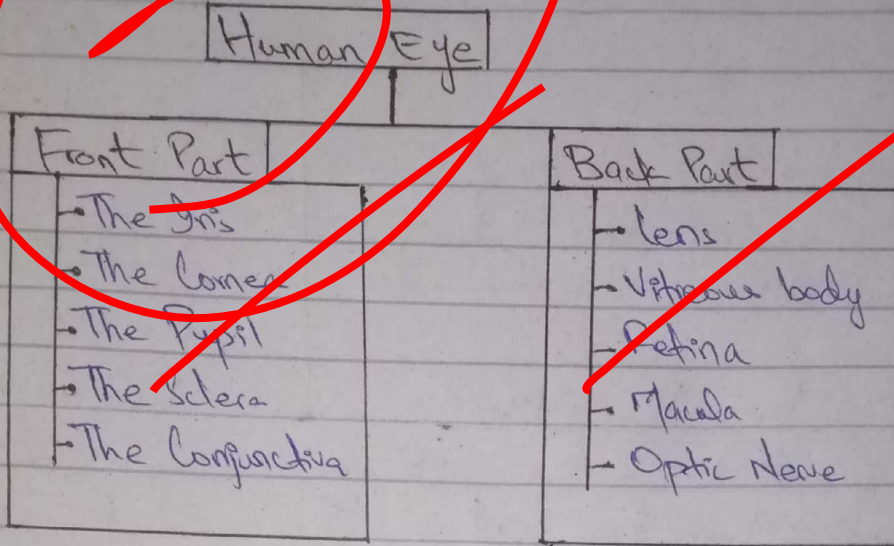 Human Eye
Front Part
The Iris
The Cornea
The Pupil
The Sclera
The Conjunctiva
Back Part
lens
Vitreous body
Retina
Macula
Optic Nerve